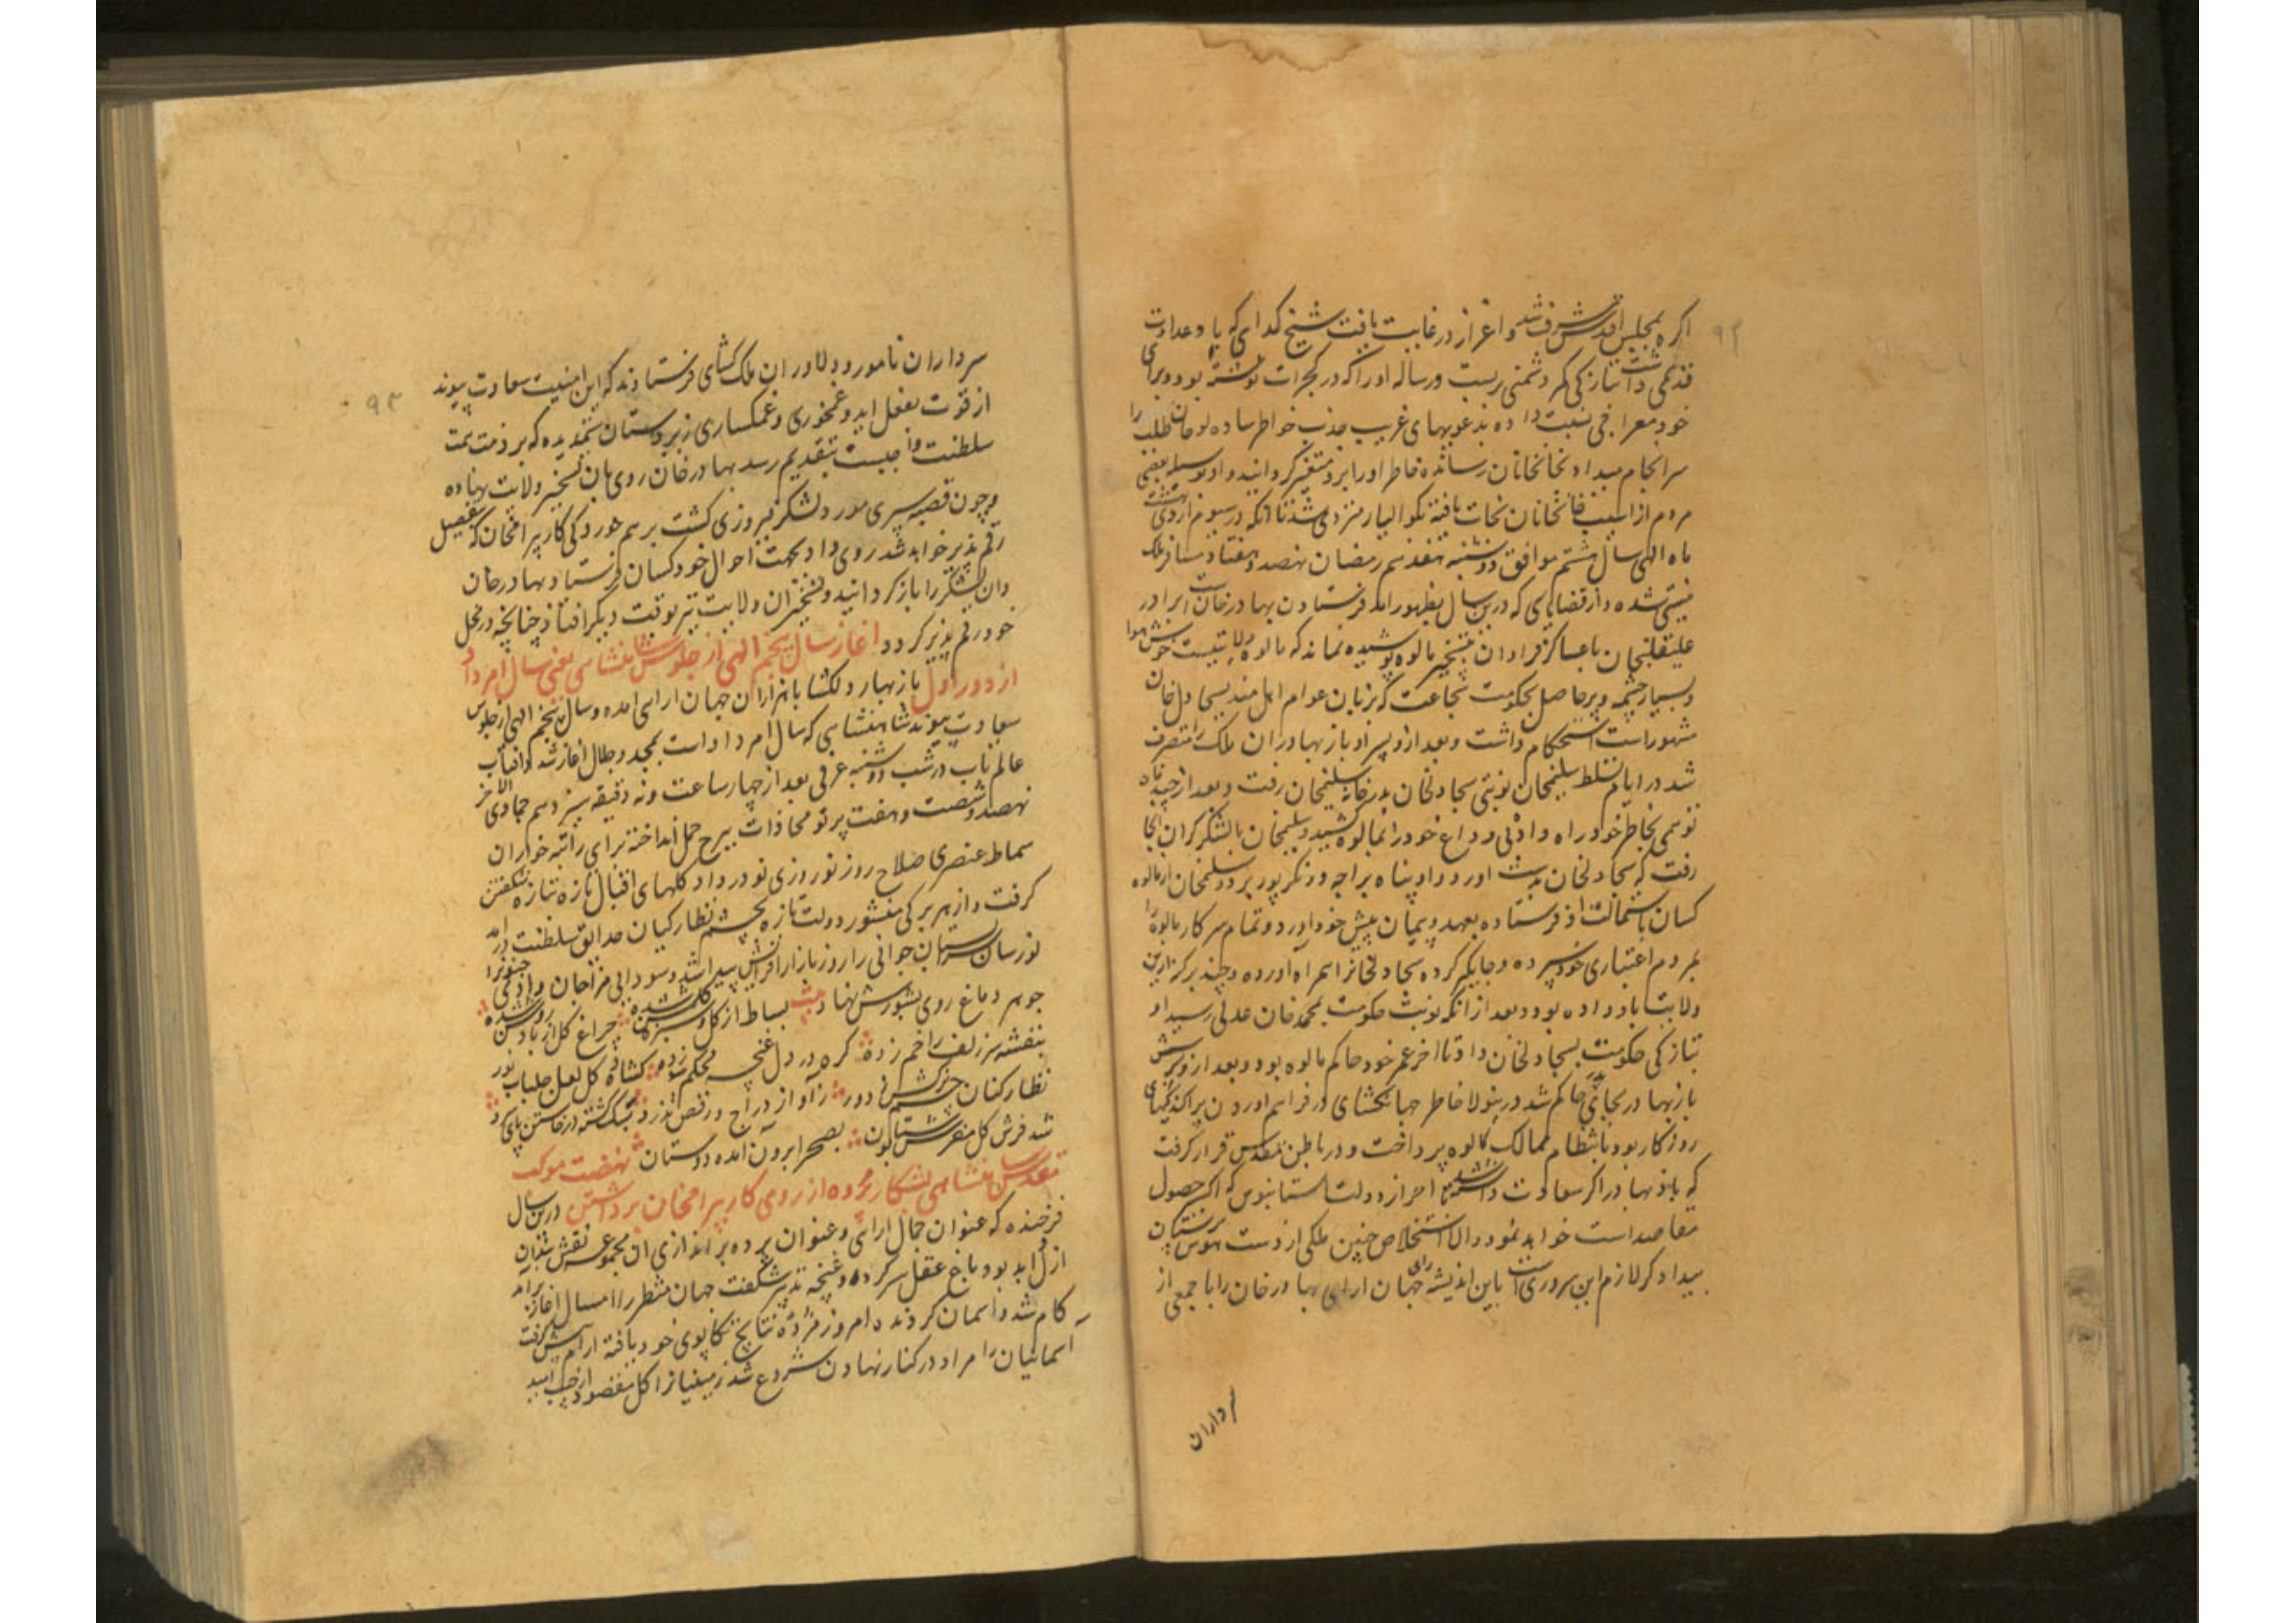 اکره بمجلس اقدس مشرف شد و اعزاز در غایت یافت شیخ کدای که با و عداوت
قدیمی داشت بتازکی کمر دشمنی بربست و رساله او را که در کجرات نوشته بود و برای
خود معراجی نسبت داده بدعویهای غریب جذب خواطر ساده لوحان طلب را
سرانجام میداد بخانخانان رسانده خاطر او را برو متغیر کردانید و او بوسیله بعضی
مردم از آسیب خانخانان نجات یافته بکوالیار منزوی شد تا آنکه در سیوم اردیبهشت
ماه الهی سال هشتم موافق دوشنبه هفدهم رمضان نهصد و هفتاد مسافر ملک
نیستی شد و از قضایای که درین سال بظهور آمد فرستادن بهادرخان است برادر
علیقلیخان با عساکر فراوان بتسخیر مالوه پوشیده نماند که مالوه ولایتیست خوش هوا
و بسیار چشمه و پر حاصل بحکومت شجاعت که بزبان عوام اهل هند بسجاول خان
مشهور است استحکام داشت و بعد ازو پسر او بازبهادر ان ملک را متصرف
شد در ایام تسلط سلیمخان نوبتی سجاولخان بدرخانه سلیمخان رفت و بعد از چند کاه
توهمی بخاطر خود راه داد و بی وداع خود را بمالوه کشید و سلیمخان با لشکر کران انجا
رفت که سجاولخان بدست آورد و او پناه براجه دونکرپور برد و سلیمخان از مالوه
کسان باستمالت او فرستاده بعهد و پیمان پیش خود آورد و تمام سرکار مالوه را
بمردم اعتباری خود سپرده و جایکیر کرده سجاولخانرا همراه آورده و چند پرکنه ازین
ولایت باو داده بود و بعد از آنکه نوبت حکومت بمحمدخان عدلی رسید او
بتازکی حکومت بسجاولخان داد تا آخر عمر خود حاکم مالوه بود و بعد ازو پسرش
بازبهادر بجای پدر حاکم شد درینولا خاطر جهانکشای در فراهم آوردن پراکندکیهای
روزکار بود بانتظام ممالک مالوه پرداخت و در باطن مقدس قرار کرفت
که بازبهادر اکر سعادت داشته باشد احراز دولت آستانبوس که اکسیر حصول
مقاصد است خواهد نمود و الا استخلاص چنین ملکی از دست هوس پرستان
بیدادکر لازم این سروری است باین اندیشه رای جهان آرای بهادرخان را با جمعی از
سرداران
سرداران نامور و دلاوران ملک کشای فرستادند که این امنیت سعادت پیوند
از قوت بفعل آید و غمخوری و غمکساری زیردستان ستمدیده که بر ذمت همت
سلطنت واجبست بتقدیم رسد بهادرخان روی بان تسخیر ولایت نهاده
و چون قصبه سیری مورد لشکر فیروزی کشت برهم خوردکی کار بیرامخان که بتفصیل
رقم پذیر خواهد شد روی داد بجهت احوال خود کسان فرستاد بهادرخان
و ان لشکر را باز کردانید و تسخیر ان ولایت نیز بوقت دیکر افتاد چنانچه در محل
خود رقم پذیر کردد آغاز سال پنجم الهی از جلوس شاهنشاهی یعنی سال امرداد
از دور اول باز بهار دلکشا با هزاران جهان آرای آمده و سال پنجم الهی از جلوس
سعادت پیوند شاهنشاهی که سال امرداد است بمجد و جلال آغاز شد و آفتاب
عالم تاب در شب دوشنبه عرفی بعد از چهار ساعت و نه دقیقه سیزدهم جمادی الآخر
نهصد و شصت و هفت پرتو محاذات ببرج حمل انداخته برای راتبه خواران
سماط عنصری صلاح روز نوروزی نو درداد کلهای اقبال تازه تازه شکفتن
کرفت و از هر برکی منشور دولت تازه بچشم نظارکیان حدایق سلطنت درآمد
نورسان بستان جوانی را روز بازار افزایش پیدا شد و سودایی مزاجان وادی جنونرا
جوهر دماغ روی بشورش نهاد بیت بساط از کل و سبزه کلشن شده چراغ کل از باد روشن شده
بنفشه سر زلف را خم زده کره در دل غنچه محکم زده کشاده کل لعل جلباب نور
نظارکنان چشم نرکس ز دور ز آواز دراج و رقص تذرو سبک کشته در خاستن پای
شد فرش کل منقرش ستبون بصحرا برون آمده دوستان نهضت موکب
مقدس شاهنشاهی بشکار و پرده از روی کار بیرامخان برداشتن درین سال
فرخنده که عنوان جمال آرائی و عنوان پرده براندازی ان مجموعه نقش بندان
ازل و ابد بود باغ عقل سر کرده و غنچه تدبیر شکفت جهان منتظر را امسال آغاز برآمد
کام شد و آسمان کردنده امروز مژده نتایج تکاپوی خود یافته آرام پیش کرفت
آسمانیان را مراد در کنار نهادن شروع شد زمینیانرا کل مقصود از جیب امید